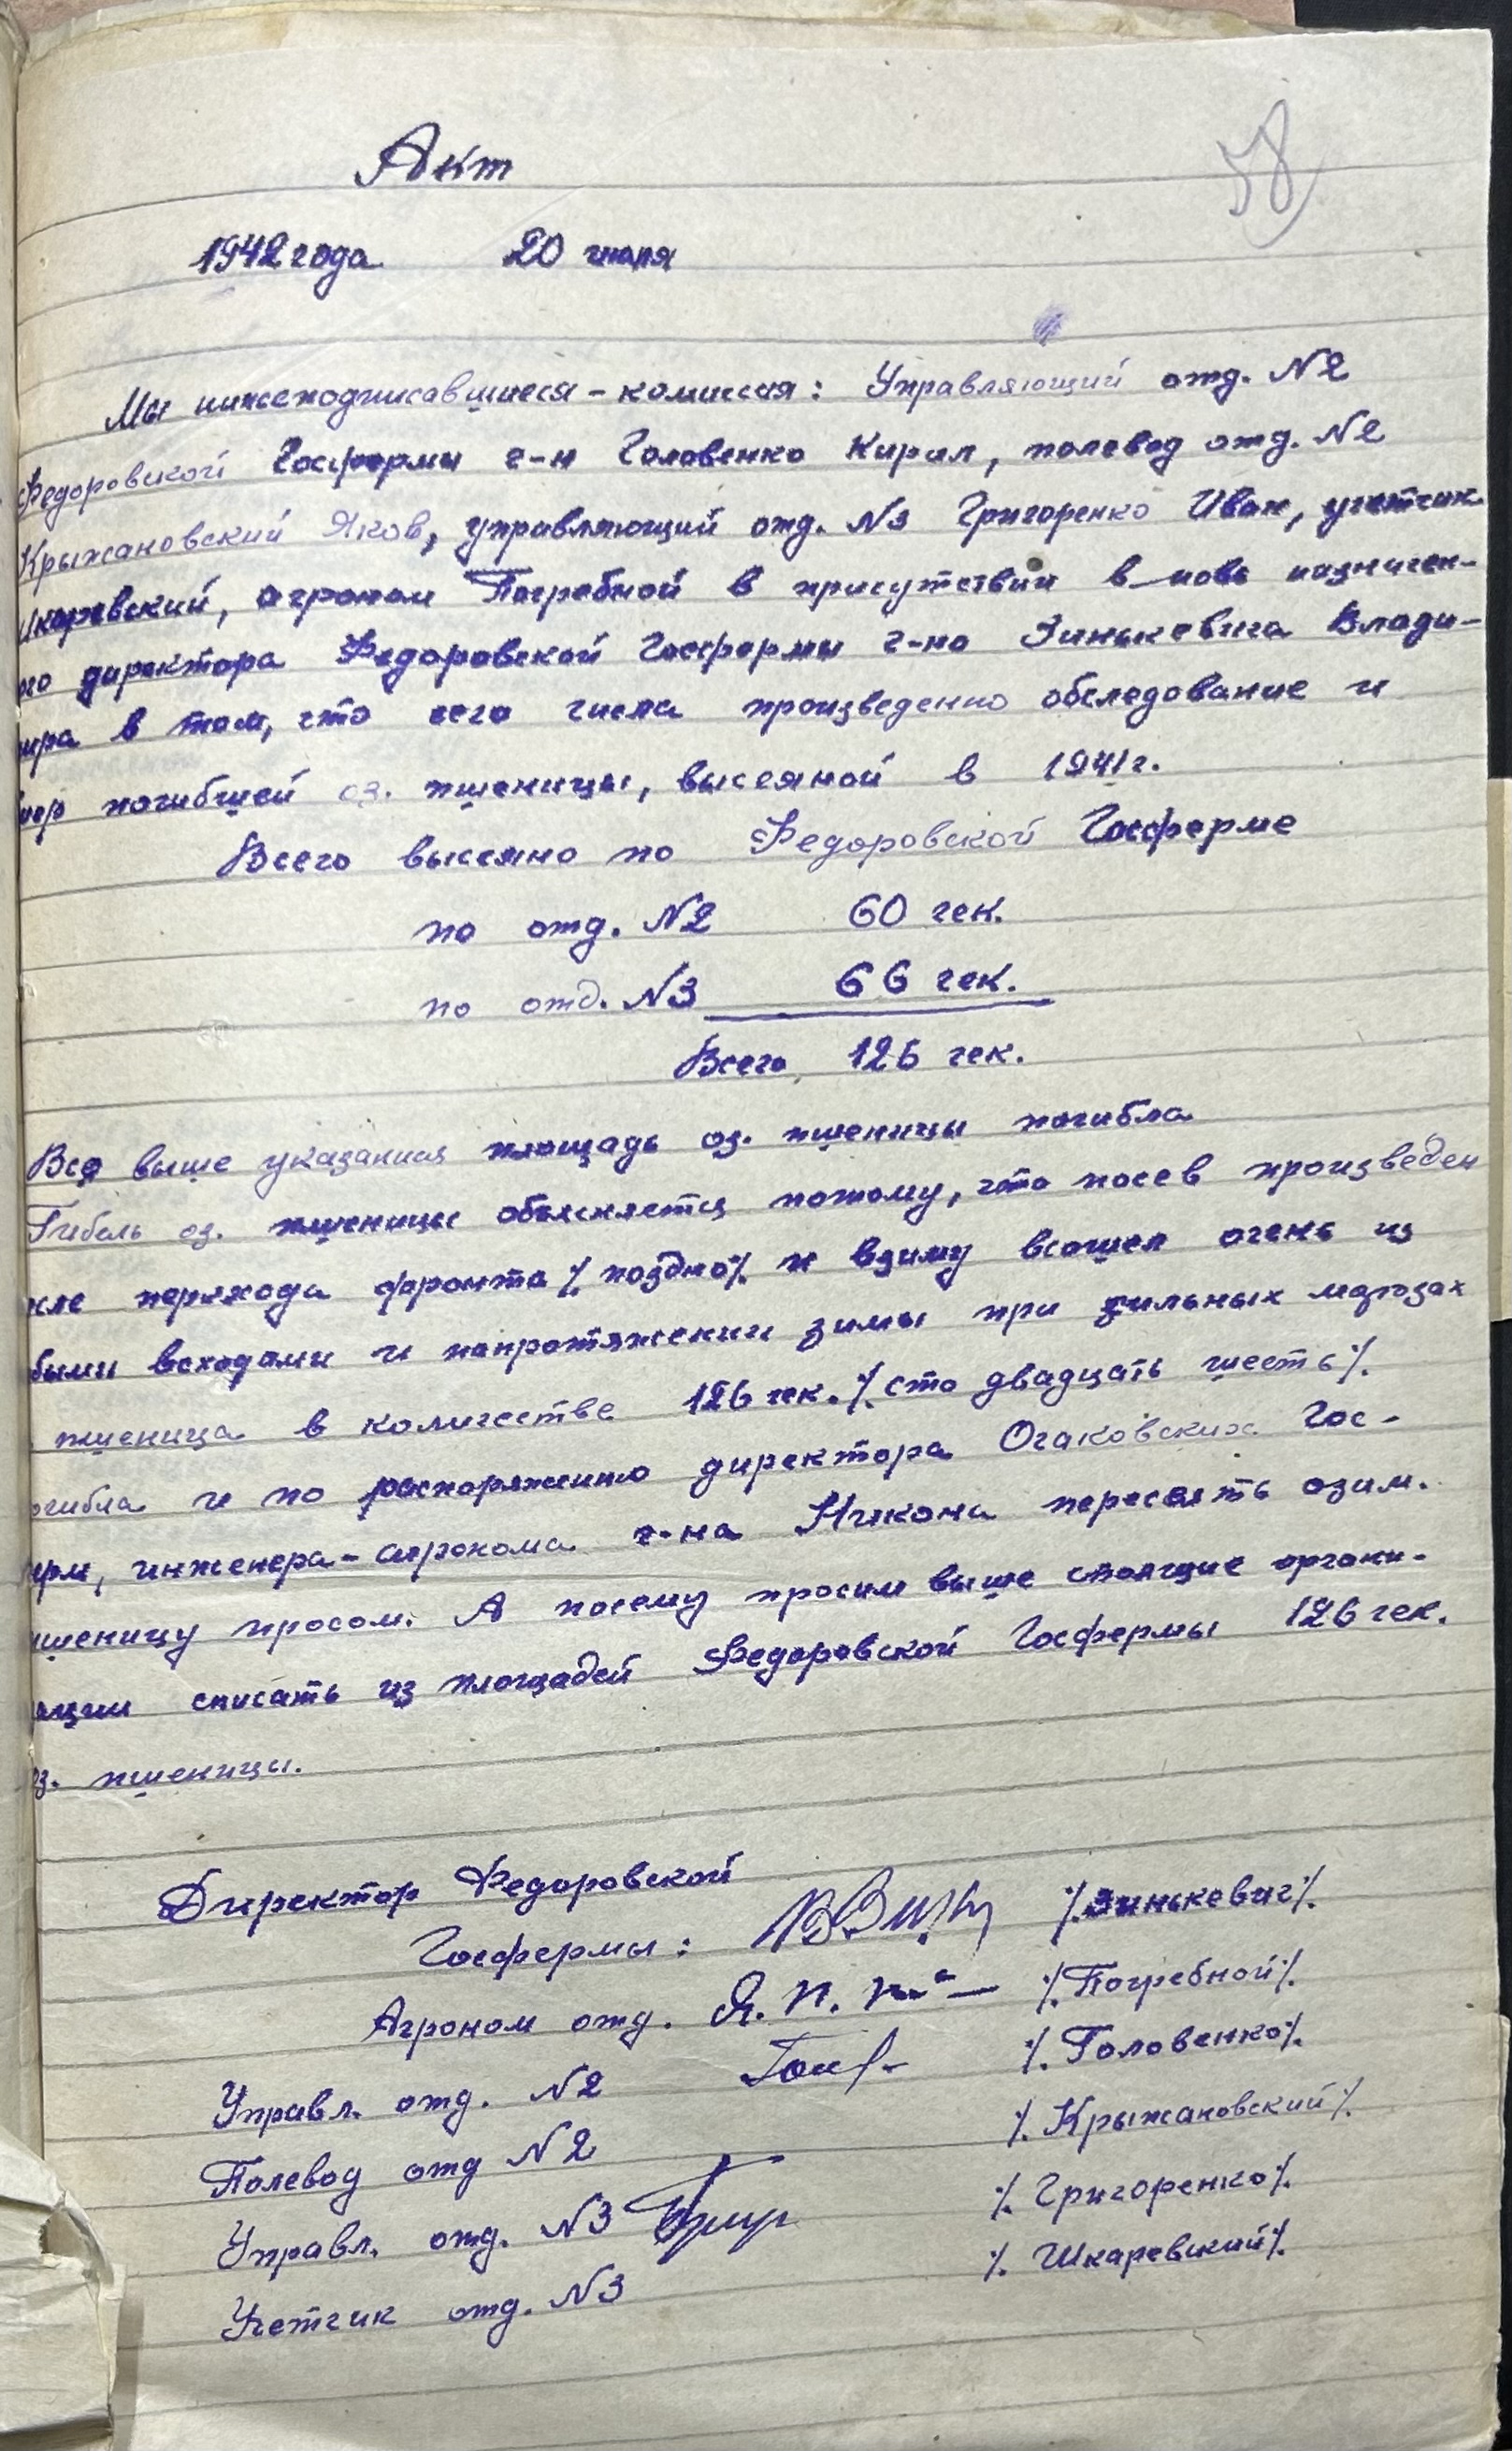 58
Акт
1942 года 20 июля
Мы нижеподписавшиеся - комиссия: Управляющий отд. N2
Федоровской Госфермы г-н Головенко Кирил, полевод отд. N2
Крыжановский Яков, управляющий отд. N3 Григоренко Иван, учетчик
Шкаревский, агроном Погребной в присутствии в нове назначен-
ого директора Федоровской Госфермы г-на Зинькевича Влади-
мира в том, что сего числа произведенно обследование и
мер погибшей оз. пшеницы, высеяной в 1941 г.
Всего высеяно по Федоровской Госферме
по отд. N2 60 гек.
по отд. N3 66 гек.
Всего 126 гек.
Вся выше указанная площадь оз. пшеницы погибла
Гибель оз. пшеницы объясняется потому, что посев произведен
сле перехода фронта ٪поздно٪ и взиму взошел очень из
быми всходами и напротяжении зимы при сильных морозах
пшеница в количестве 126 гек. ٪сто двадцать шесть٪
огибла и по распоряжению директора Очаковских Гос-
ерм, инженера-агронома г-на Никона пересеять озим.
пшеницу просом. А посему просим выше стоящие органи-
ации списать из площадей Федоровской Госфермы 126 гек.
оз. пшеницы.
Директор Федоровской
Госфермы: ٪Зинькевич٪
Агроном отд. Я. П. ٪Погребной٪
Управл. отд. N2 ٪Головенко٪
Полевод отд N2 ٪Крыжановский٪
Управл. отд. N3 ٪Григоренко٪
Учетчик отд. N3 ٪Шкаревский٪